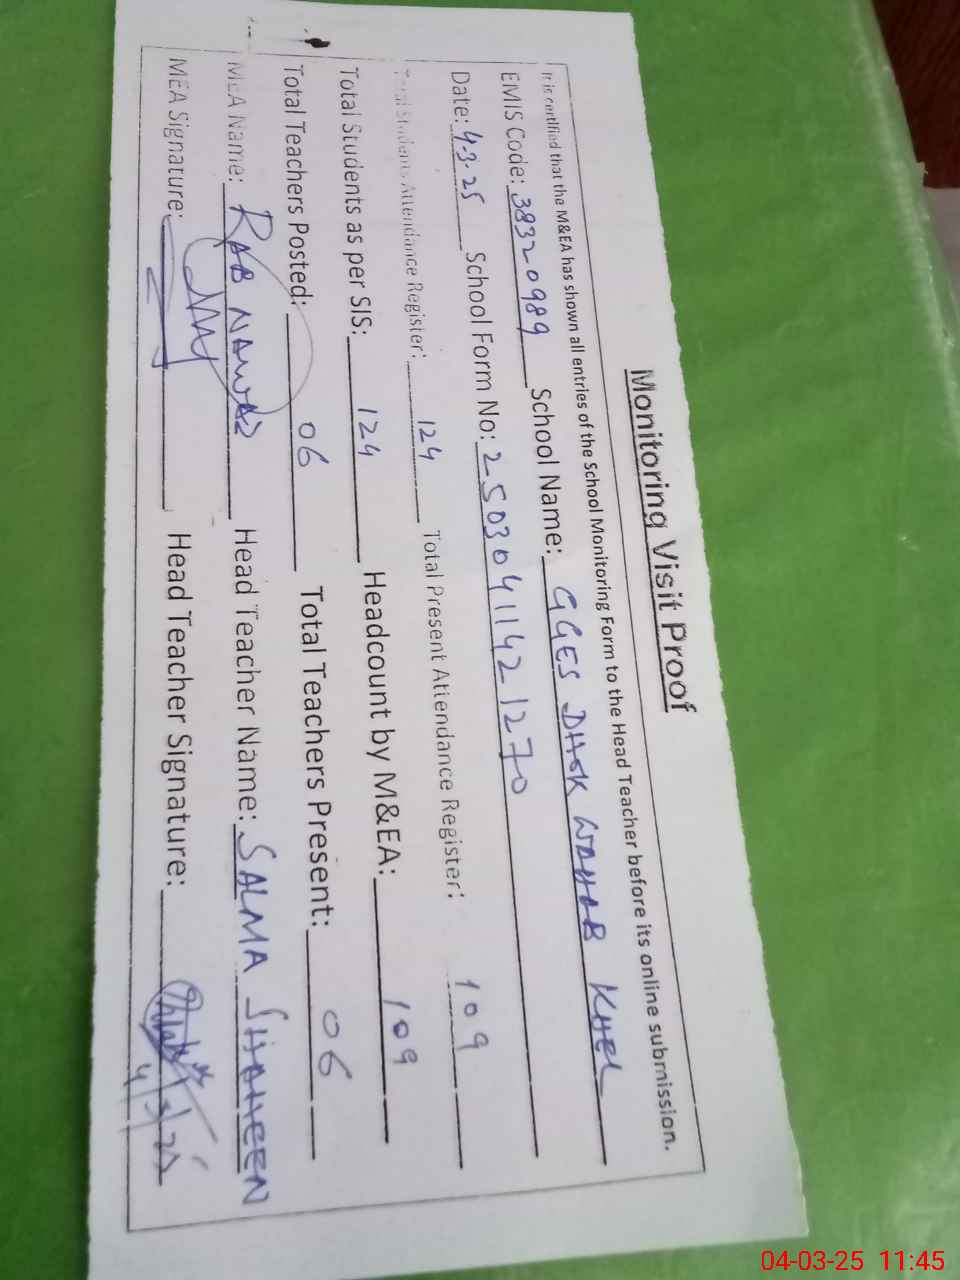 Monitoring Visit Proof
It is certified that the M&EA has shown all entries of the School Monitoring Form to the Head Teacher before its online submission.
EMIS Code: 38320989 School Name: GGES DHOK WAHAB KHEL
Date: 4.3.25 School Form No: 2503041142 1270
Total Students Attendance Register: 124 Total Present Attendance Register: 109
Total Students as per SIS: 124 Headcount by M&EA: 109
Total Teachers Posted: 06 Total Teachers Present: 06
MEA Name: RAB NAWAZ Head Teacher Name: SALMA SHAHEEN
MEA Signature: Head Teacher Signature:
4/3/25
04-03-25 11:45